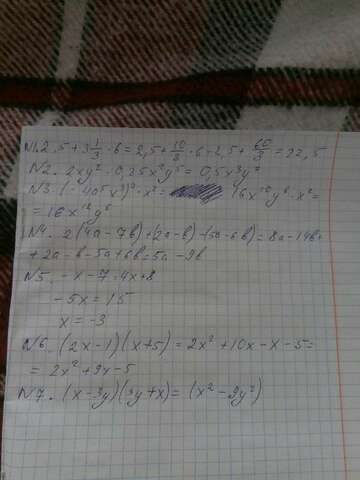 N1. 2,5+3 1/3 · 6 = 2,5 + 10/3 · 6 = 2,5 + 60/3 = 22,5
N2. 2xy² · 0,25x²y⁵ = 0,5x³y⁷
N3. (-4a⁵x³)² · x² = 16x¹⁰y⁶ · x² =
= 16x¹²y⁶
N4. 2(4a-7b)+(2a-b)-(5a-6b)=8a-14b+
+2a-b-5a+6b=5a-9b
N5. -x-7=4x+8
-5x=15
x=-3
N6. (2x-1)(x+5)=2x²+10x-x-5=
= 2x²+9x-5
N7. (x-3y)(3y+x)=(x²-9y²)